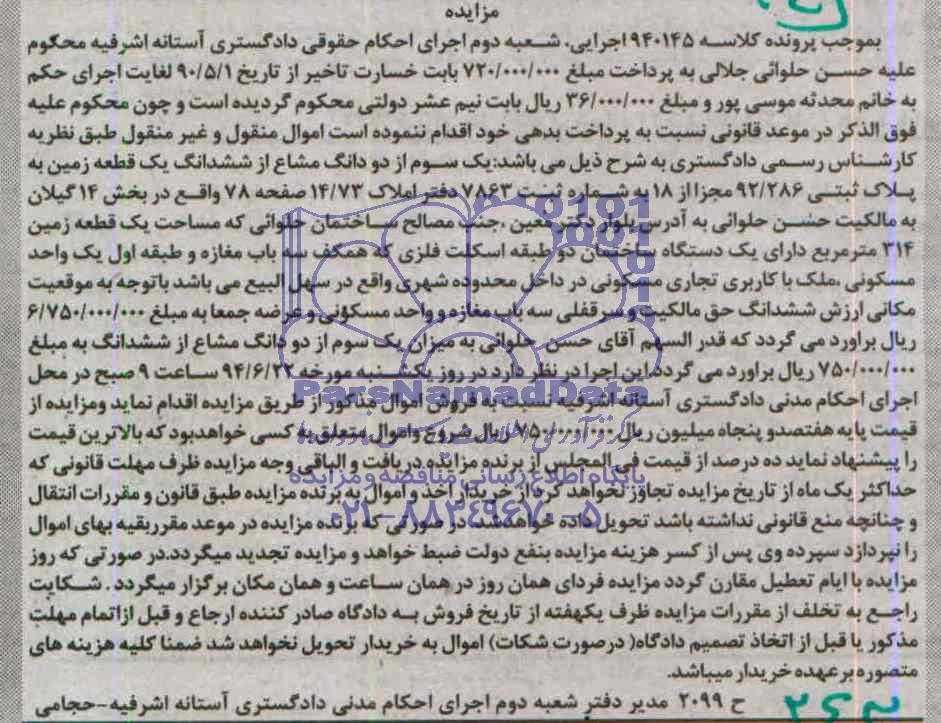 مزایده
بموجب پرونده کلاسه ۹۴۰۱۴۵ اجرایی، شعبه دوم اجرای احکام حقوقی دادگستری آستانه اشرفیه محکوم
علیه حسن حلوائی جلالی به پرداخت مبلغ ۷۲۰/۰۰۰/۰۰۰ بابت خسارت تاخیر از تاریخ ۹۰/۵/۱ لغایت اجرای حکم
به خانم محدثه موسی پور و مبلغ ۳۶/۰۰۰/۰۰۰ ریال بابت نیم عشر دولتی محکوم گردیده است و چون محکوم علیه
فوق الذکر در موعد قانونی نسبت به پرداخت بدهی خود اقدام ننموده است اموال منقول و غیر منقول طبق نظریه
کارشناس رسمی دادگستری به شرح ذیل می باشد:یک سوم از دو دانگ مشاع از ششدانگ یک قطعه زمین به
پلاک ثبتی ۹۲/۲۸۶ مجزا از ۱۸ به شماره ثبت ۷۸۶۳ دفتر املاک ۱۴/۷۳ صفحه ۷۸ واقع در بخش ۱۴ گیلان
به مالکیت حسن حلوائی به آدرس بلوار دکتر معین ،جنب مصالح ساختمان حلوائی که مساحت یک قطعه زمین
۳۱۴ مترمربع دارای یک دستگاه ساختمان دو طبقه اسکلت فلزی که همکف سه باب مغازه و طبقه اول یک واحد
مسکونی ،ملک با کاربری تجاری مسکونی در داخل محدوده شهری واقع در سهل البیع می باشد باتوجه به موقعیت
مکانی ارزش ششدانگ حق مالکیت و سرقفلی سه باب مغازه و واحد مسکونی و عرضه جمعا به مبلغ ۶/۷۵۰/۰۰۰/۰۰۰
ریال براورد می گردد که قدر السهم آقای حسن حلوائی به میزان یک سوم از دو دانگ مشاع از ششدانگ به مبلغ
۷۵۰/۰۰۰/۰۰۰ ریال براورد می گردد.این اجرا در نظر دارد در روز یکشنبه مورخه ۹۴/۶/۲۲ ساعت ۹ صبح در محل
اجرای احکام مدنی دادگستری آستانه اشرفیه نسبت به فروش اموال مذکور از طریق مزایده اقدام نماید ومزایده از
قیمت پایه هفتصدو پنجاه میلیون ریال ۷۵۰/۰۰۰/۰۰۰ ریال شروع واموال متعلق به کسی خواهدبود که بالاترین قیمت
را پیشنهاد نماید ده درصد از قیمت فی المجلس از برنده مزایده دریافت و الباقی وجه مزایده ظرف مهلت قانونی که
حداکثر یک ماه از تاریخ مزایده تجاوز نخواهد کرد از خریدار اخذ و اموال به برنده مزایده طبق قانون و مقررات انتقال
و چنانچه منع قانونی نداشته باشد تحویل داده خواهدشد. در صورتی که برنده مزایده در موعد مقرربقیه بهای اموال
را نپردازد سپرده وی پس از کسر هزینه مزایده بنفع دولت ضبط خواهد و مزایده تجدید میگردد.در صورتی که روز
مزایده با ایام تعطیل مقارن گردد مزایده فردای همان روز در همان ساعت و همان مکان برگزار میگردد . شکایت
راجع به تخلف از مقررات مزایده ظرف یکهفته از تاریخ فروش به دادگاه صادر کننده ارجاع و قبل ازاتمام مهلت
مذکور یا قبل از اتخاذ تصمیم دادگاه( درصورت شکات) اموال به خریدار تحویل نخواهد شد ضمنا کلیه هزینه های
متصوره برعهده خریدار میباشد.
ح ۲۰۹۹ مدیر دفتر شعبه دوم اجرای احکام مدنی دادگستری آستانه اشرفیه-حجامی
ParsNamadData
پایگاه اطلاع رسانی مناقصه و مزایده
۰۲۱-۸۸۳۴۹۶۷۰-۵